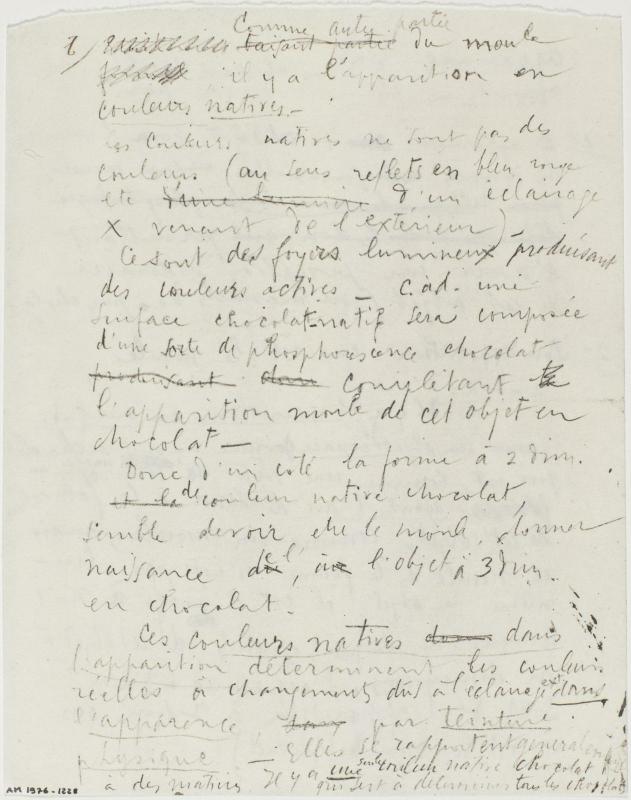 Comme autre partie
faisant partie du moule
il y a l'apparition en
couleurs natives.–
Les couleurs natives ne sont pas des
couleurs (au sens reflets en bleu, rouge
etc d'une lumière d'un éclairage
X venant de l'extérieur)–
Ce sont des foyers lumineux produisant
des couleurs actives – c.à d. une
surface chocolat-natif sera composée
d'une sorte de phosphorescence chocolat
produisant dans complétant
l'apparition moule de cet objet en
chocolat –
Donc d'un coté la forme à 2 dim.
et la de couleur native chocolat,
semble devoir être le moule, donner
naissance de l', l'objet à 3 dim.
en chocolat.
Ces couleurs natives dans dans
l'apparition déterminent les couleurs
réelles à changements dûs à l'éclairage ext dans
l'apparence par teinture
physique – Elles se rapportent généralement
à des matières. Il y a une seule couleur native chocolat
qui sert à déterminer tous les chocolats
AM 1976-1228